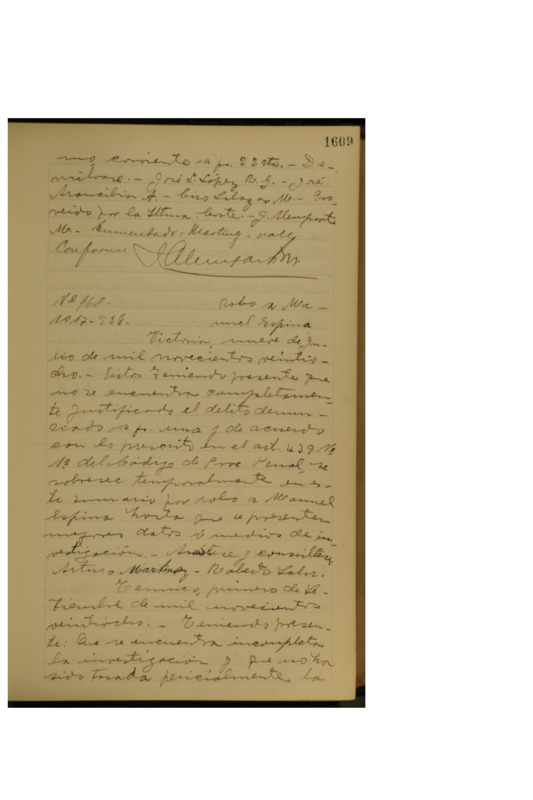 1609
mo corriente a fs. 22 vta. - De-
vuélvase. - José L. López R. G. - José
Arancibia A. - Ciro Salazar M. - Pro-
veído por la Iltma. Corte. - J. Alemparte
Ma- Enmendado - Marting - vale
Conforme
Nº 962. Robo a Ma-
1º 17 - 928. nuel Espina
Victoria, nueve de Ju-
de mil novecientos veintio-
cho. - Vistos Teniendo presente que
no se encuentra completamen-
te justificado el delito denun-
ciado a fs. una y de acuerdo
con lo prescrito en el art. 439 Nº
1º del Código de Proc. Penal, se
sobresee temporalmente en es-
te sumario por robo a Manuel
Espina hasta que se presenten
mejores datos o medios de in-
vestigación. - Anótese y consúltese
Arturo Martinez - Roberto
Temuco, primero de Se-
tiembre de mil novecientos
veintiocho. - Teniendo presen-
te: Que se encuentra incompleta
la investigación y que no ha
sido tasada pericialmente la